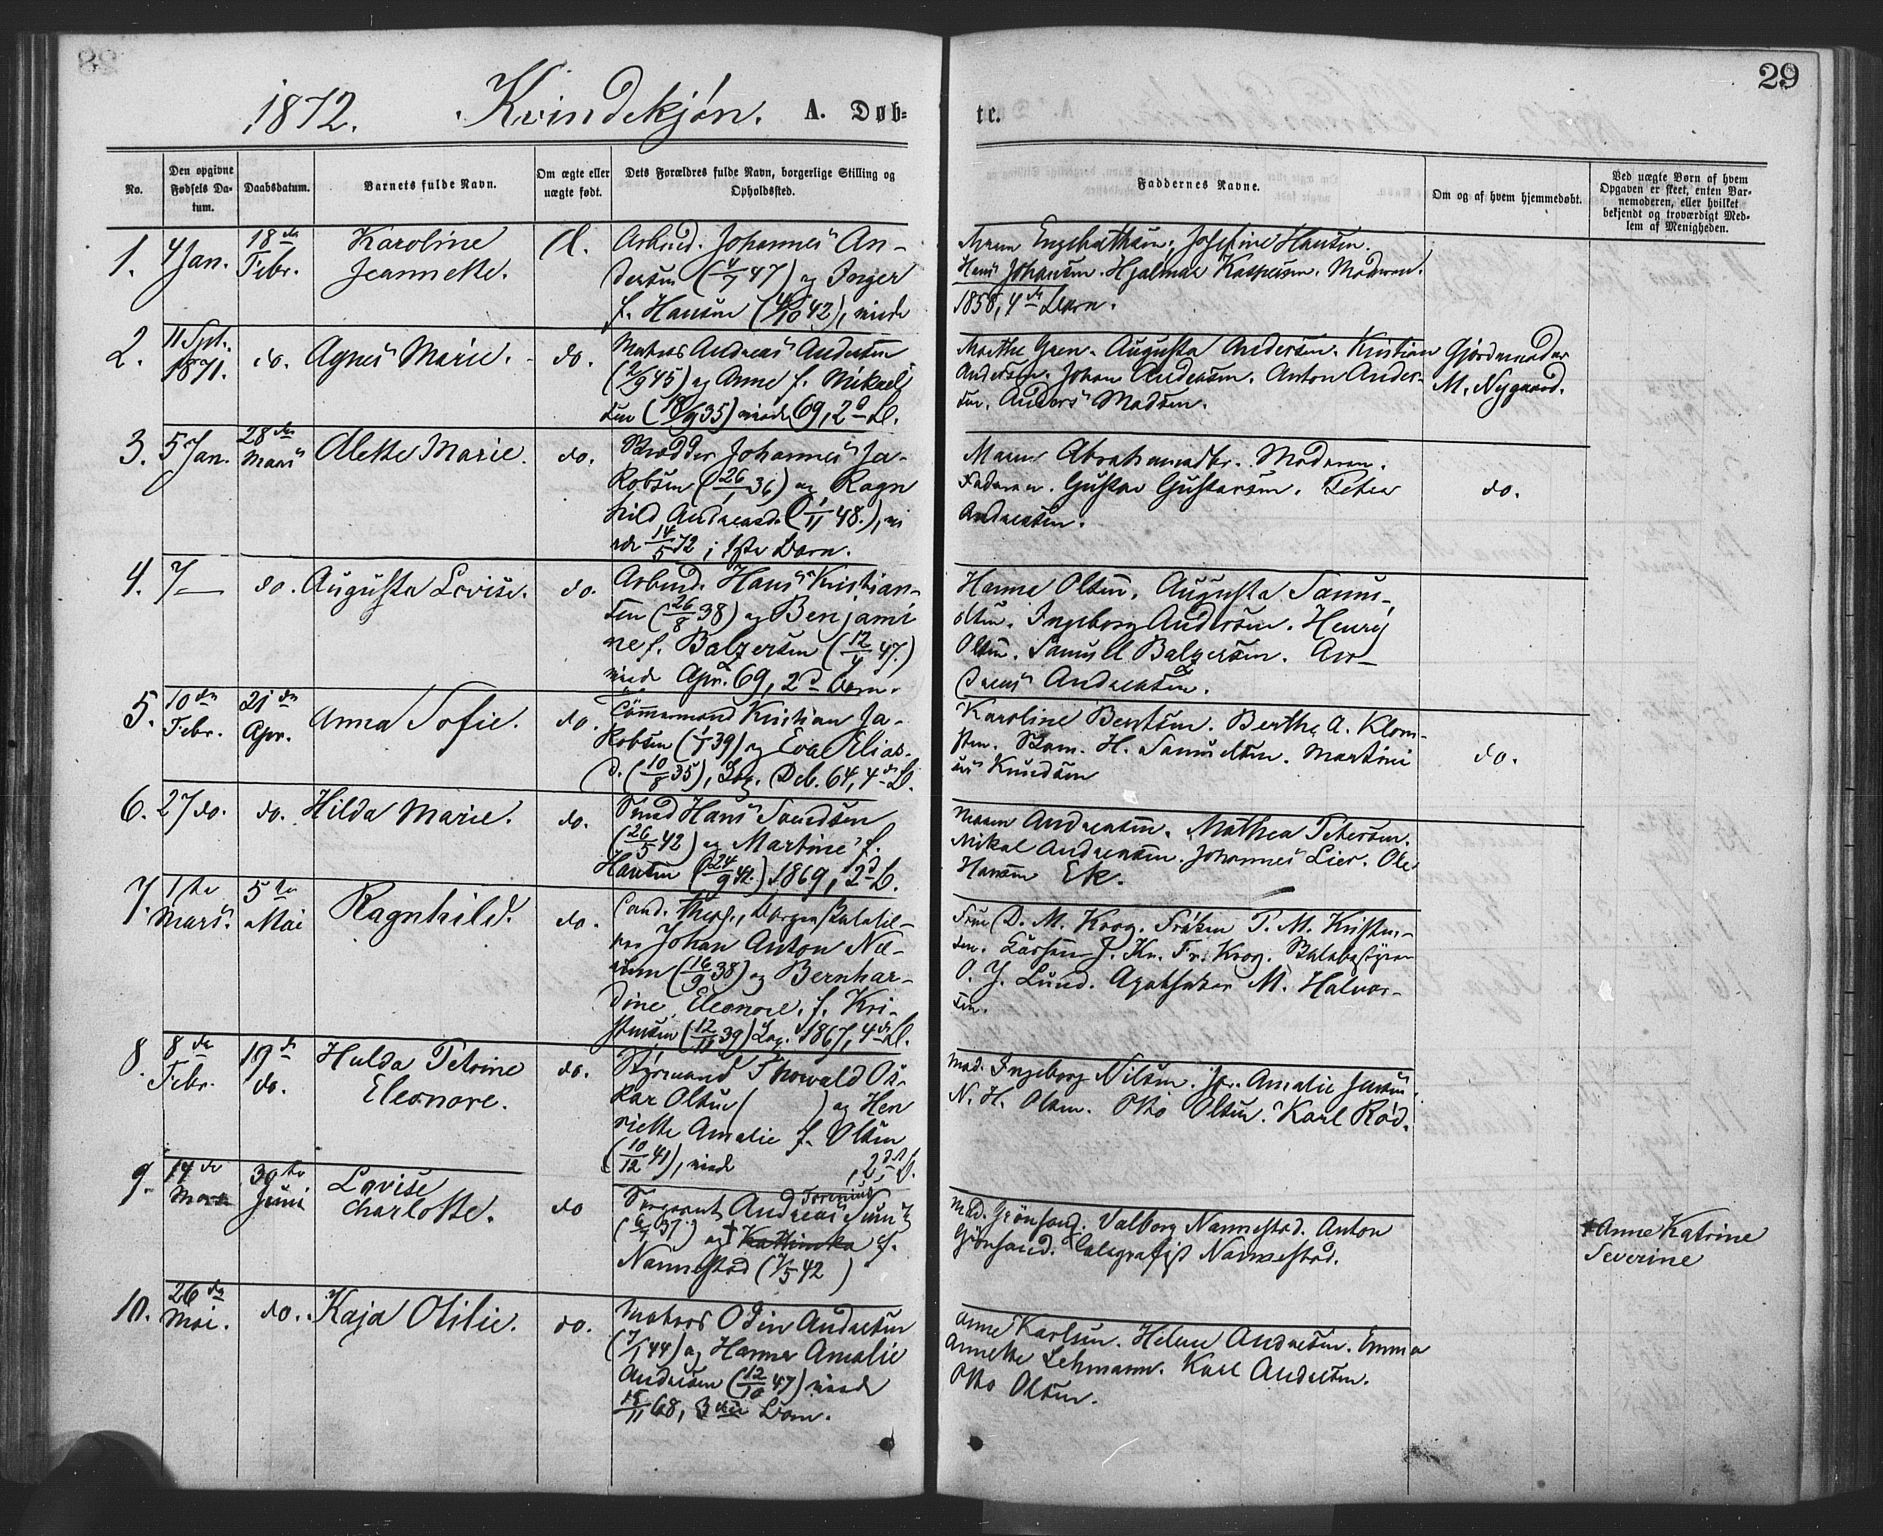 29
1872. Kvindekjøn. A. Døb-
te.
No.
Den opgivne
Fødsels Da-
tum.
Daabsdatum.
Barnets fulde Navn.
Om ægte eller
uægte født.
Dets Forældres fulde Navn, borgerlige Stilling og
Opholdssted.
Faddernes Navne.
Om og af hvem hjemmedøbt.
Ved uægte Børn af hvem
Opgaven er skeet, enten Bar-
nemoderen, eller hvilket
bekjendt og troværdigt Med-
lem af Menigheden.
1.
4 Jan.
18de
Febr.
Karoline
Jeannette.
Arbud. Johannes An-
dersen (4/7 47) og Inger
f. Hansen (4/10 42), viede
Maren Engebrethsen. Josefine Hansen.
Hans Johansen. Hjalmar Kaspersen. Moderen.
1858, 4de Barn.
2.
11 Spt.
1871.
do. Agnes Marie.
do.
Matros Andreas Andersen
(2/9 45) og Anne f. Mikael
sen (19/9 35) viede 69, 2d B.
Marthe Gren. Augusta Andersen. Kristian
Andersen. Johan Andersen. Anton Ander-
sen. Anders Madsen.
Gjordemoder
M. Nygaard.
3.
5 Jan.
28de
Mars
Alette Marie.
do.
Skrædder Johannes Ja-
kobsen (26/1 36) og Ragn
hild Andreasd. (1/11 48.), vi
ede 14/5 72, 1ste Barn.
Maren Abrahamsdtr. Moderen.
Faderen. Gustav Gustavsen. Peter
Andersen.
do.
4.
7 —
do. Augusta Lovise.
do.
Arbud. Hans Kristian-
sen (26/8 38) og Benjami
ne f. Balzersen (12/4 47.)
viede Apr. 69, 2d Barn.
Hanna Olsen. Augusta Samu-
elsen. Ingeborg Andersen. Henry
Olsen. Samuel Balzersen. An-
dreas Andersen.
5.
10de
Febr.
21de
Apr.
Anna Sofie.
do.
Tømmermand Kristian Ja-
kobsen (1/1 39) og Eva Elias-
d. (10/8 35), Lag. Deb. 64, 4de B.
Karoline Berntsen. Berthe A. Klom-
sten. Skom. H. Samuelsen. Martini
us Knudsen
do.
6.
27 do.
do. Hilda Marie.
do.
Smed Hans Svendsen
(26/5 42) og Martine f.
Hansen (24/9 42.) 1869, 2d B.
Maren Andreasen. Mathea Petersen.
Mikal Andreasen. Johannes Lier. Ole
Hansen Ek.
7.
1ste
Mars
5te
Mai
Ragnhild.
do.
Cand. Theol., Borgerskolelæ-
rer Johan Anton Næ-
rum (16/9 38) og Bernhar-
dine Eleonore f. Kri-
stensen (12/11 39) Lag. 1867, 4de B.
Frue D. M. Krog. Frøken T. M. Kristen-
sen. Larsen J. Kr. Fr. Krog. Skolebestyrer
O. J. Lund. Apotheker M. Halvor-
sen.
8.
8de
Febr.
19de
do.
Hulda Petrine
Eleonore.
do.
Styrmand Thorvald Os-
kar Olsen ( ) og Hen
riette Amalie f. Olsen
(10/12 41), viede , 2det B.
Mad. Ingeborg Nilsen. Jfr. Amalie Jensen.
N. H. Olsen. Otto Olsen. Karl Rød.
9.
14de
Mars
30te
Juni
Lovise
Charlotte.
do
Sergeant Andreas
(6/1 37) og † Kathinka f.
Nannestad (7/5 42 )
Mad. Grönsand. Valborg Nannestad. Anton
Grönsand. Calegrafist Nannestad.
† Anne Katrine
Severine
10.
26de
Mai.
do. Kaja Otilie.
do.
Matros Odin Andersen
(7/1 44) og Hanna Amalie
Andersen (12/10 47) viede
15/11 68, 3die Barn.
Anne Karlsen. Helene Andersen. Emma
Annette Lehmann. Karl Andersen.
Otto Olsen.